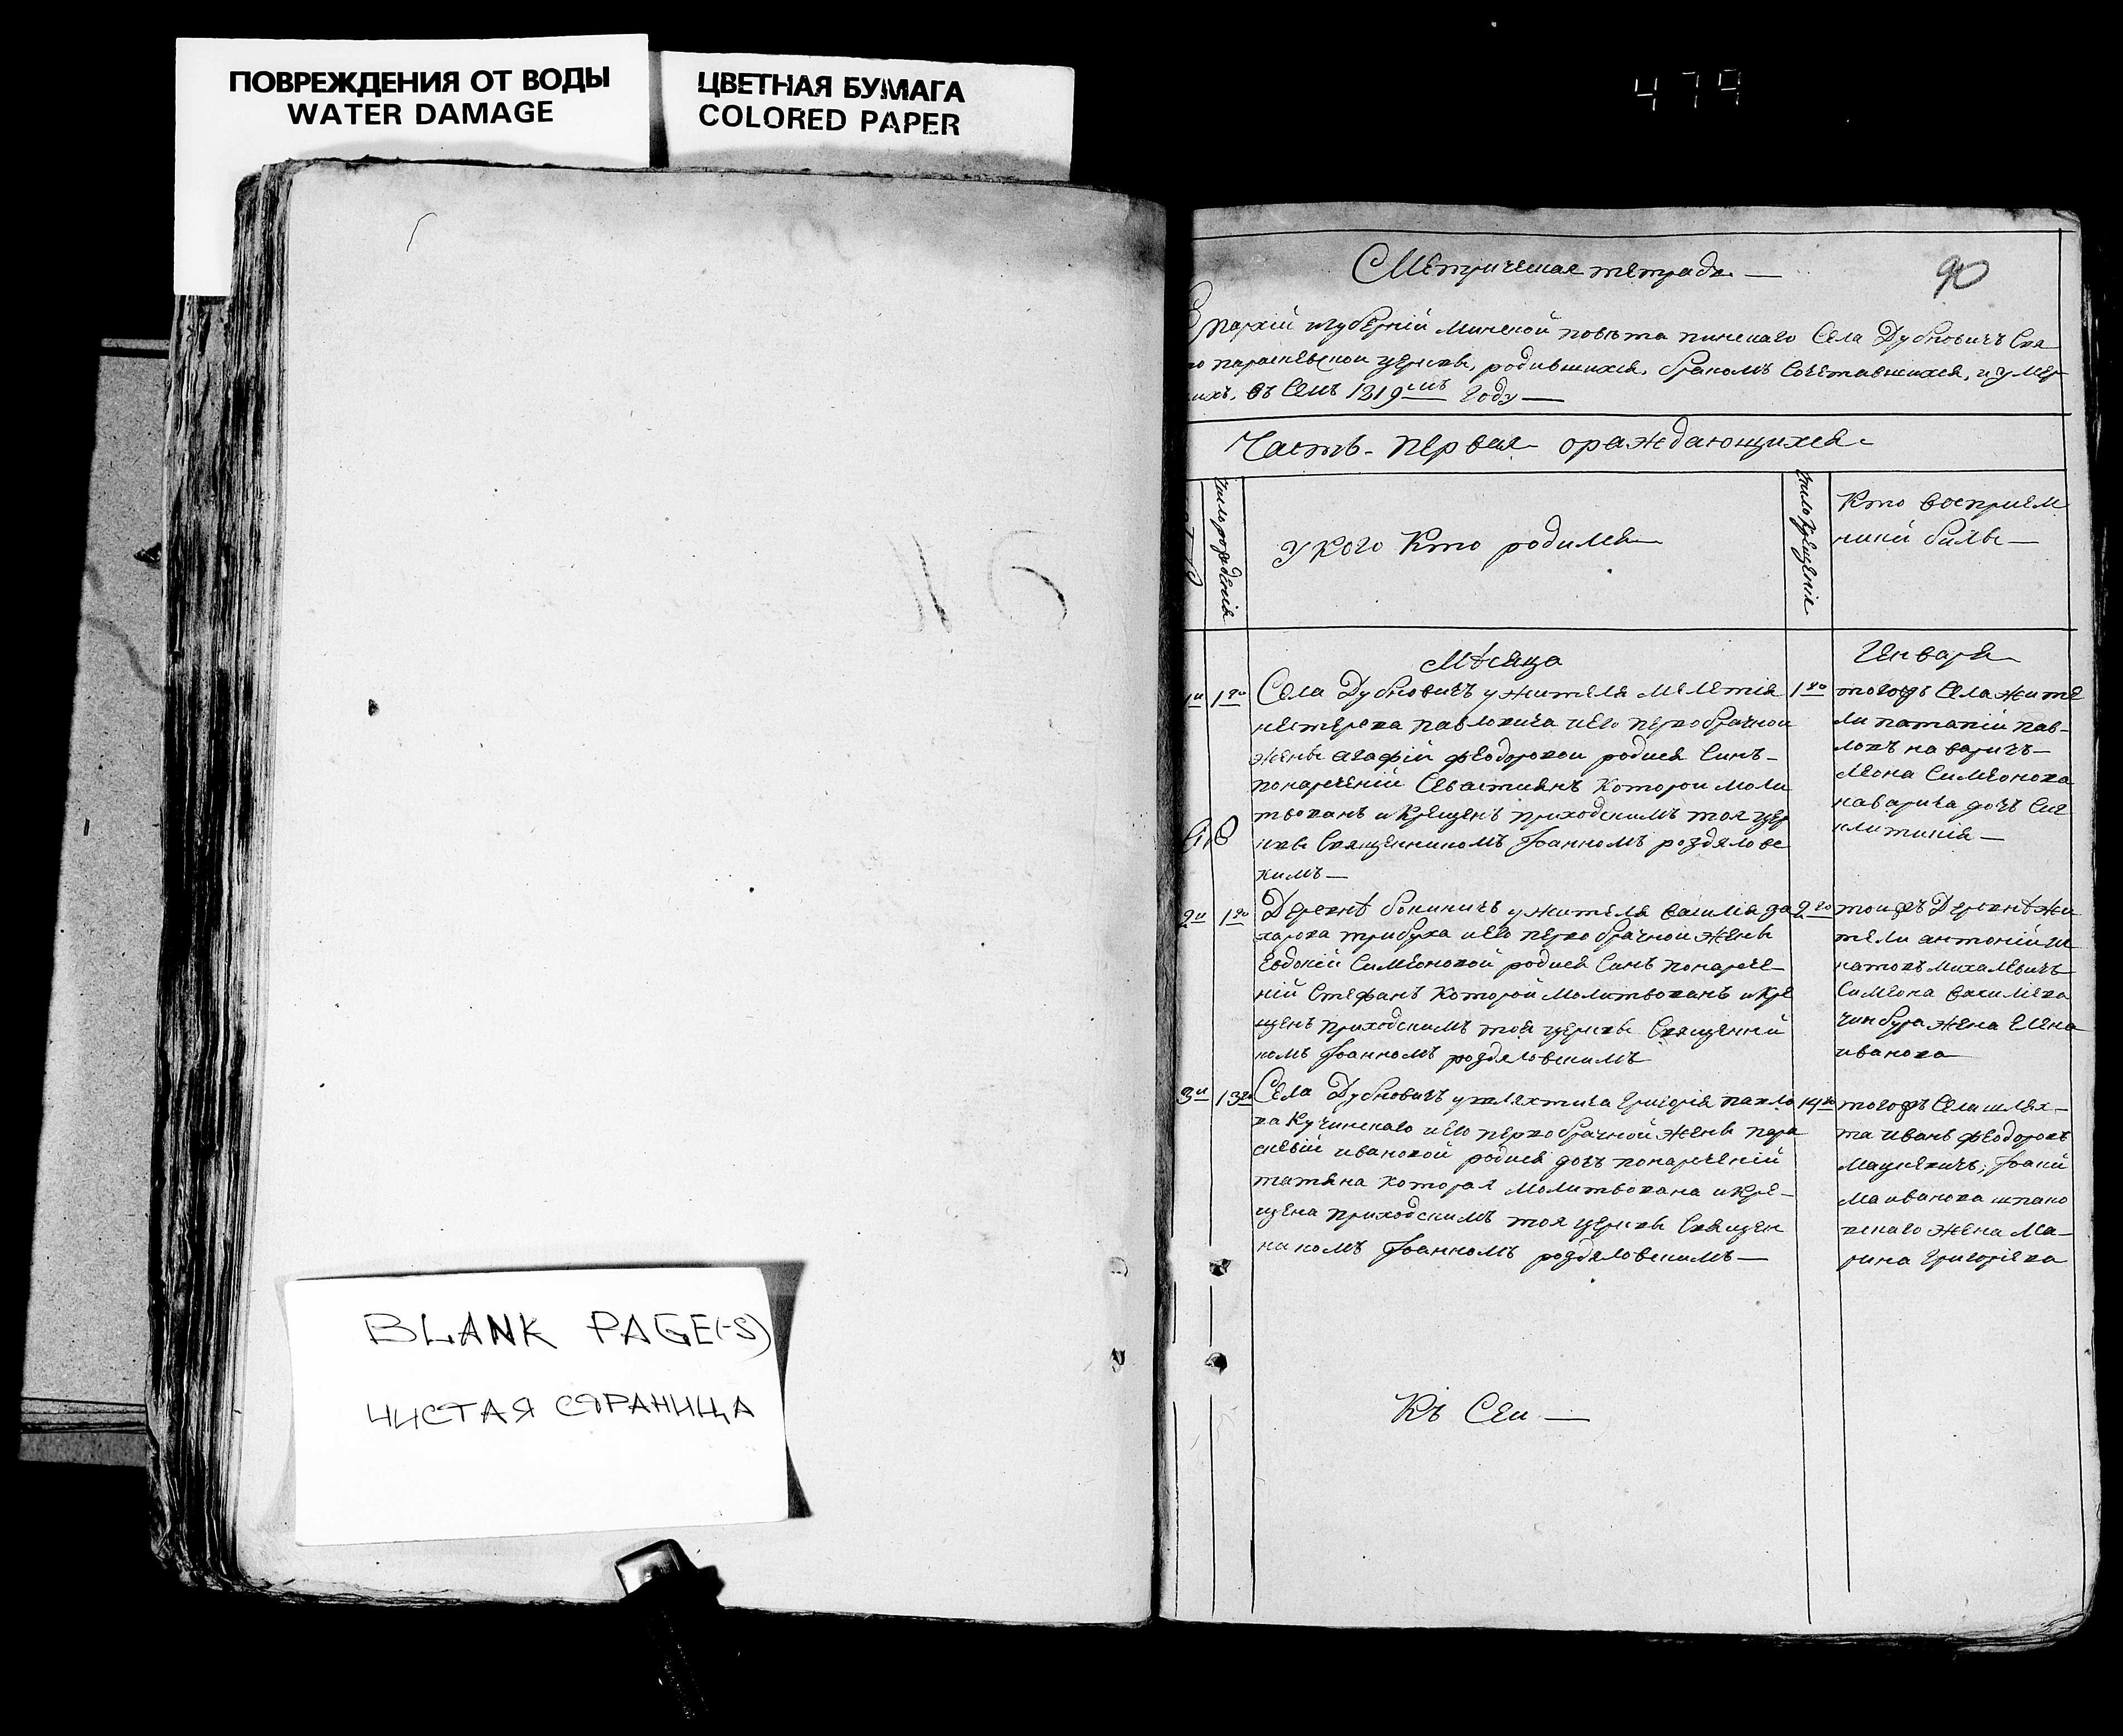 ПОВРЕЖДЕНИЯ ОТ ВОДЫ
WATER DAMAGE
ЦВЕТНАЯ БУМАГА
COLORED PAPER
479
90
Метрическая тетрадь
Епархіи и губерніи минской повѣта пинскаго Села Дубновичъ Свя
то параскевской церкви, родившихся, бракомъ Сочетавшихся, и умер
шихъ, въ Семъ 1819мъ Году
Часть первая о раждающихся
число рожденія
У кого Кто родился
число крещенія
Кто восприем
ники били
Мѣсяца
Генваря
1й 1го Села Дубновичъ у жителя мелетія
нестерова павловича и его первобрачной
жены агафіи феодоровой родися Синъ
понареченій Севастиянъ Которой моли
твованъ и Крещенъ приходскимъ тоя цер
кви Священникомъ Іоанномъ роздяловс
кимъ
1го того жъ Села жите
ли патапій пав
ловъ наваричъ
Симеонова
наварича дочъ Син
клитикія
2й 1го Деревнѣ бокиничъ у жителя василія за
харова трибуха и его первобрачной жены
Евдокіи Симеоновой родися Синъ понарече
ній Стефанъ Которой Молитвованъ и Кре
щенъ приходскимъ тоя церкви Священни
комъ Іоанномъ роздяловскимъ
2го той жъ Деревнѣ жи
тели антоній иг
натовъ михалевичъ
Симеона василіева
жена Елена
иванова
3й 13го Села Дубновичъ у шляхтича григорія павло
ва Кучинскаго и его первобрачной жены пара
скевіи ивановой родися дочъ понареченій
татяна которая молитвована и Кре
щена приходскимъ тоя церкви Священ
никомъ Іоанномъ роздяловскимъ
14го того жъ Села шлях
та иванъ феодоровъ
Мацкевичъ, Іоаки
ма иванова шпако
вскаго жена Ма
рина григоріева
Къ Сей
BLANK PAGE(-S)
ЧИСТАЯ СТРАНИЦА